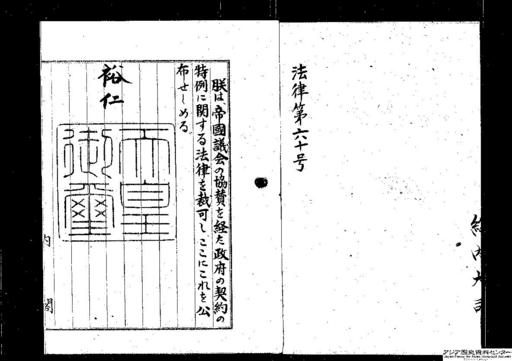 法律第六十号
朕は、帝國議会の協賛を経た政府の契約の
特例に関する法律を裁可し、ここにこれを公
布せしめる。
裕仁
天皇
御璽
内閣
アジア歴史資料センター